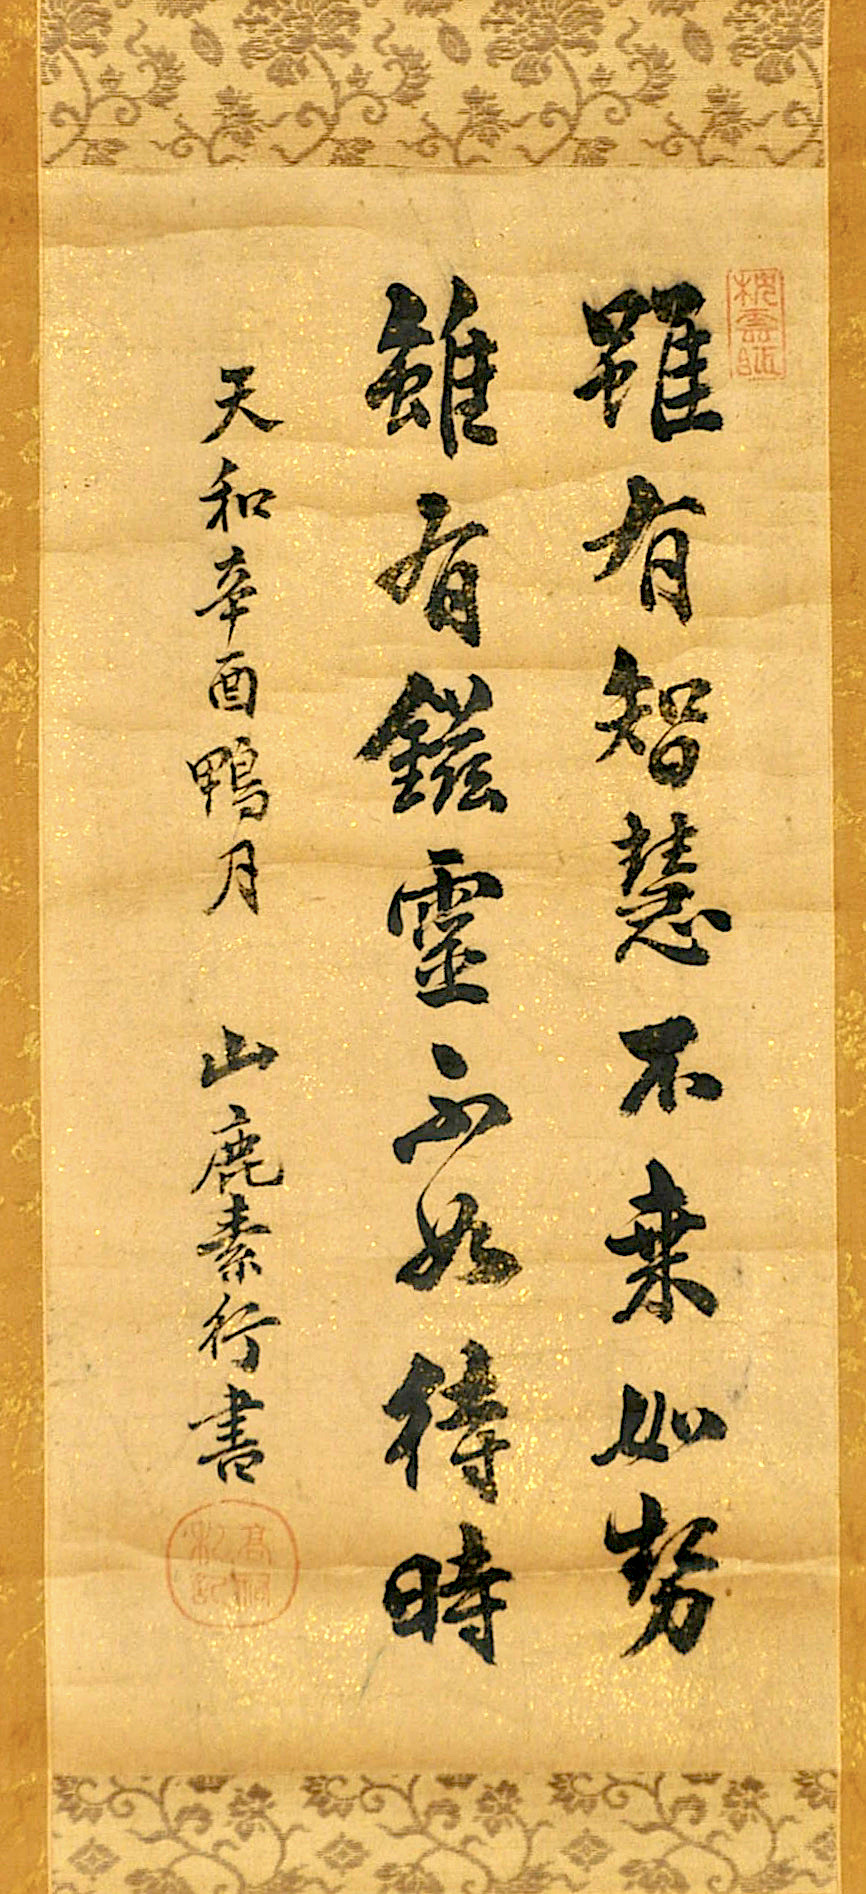 雖有智慧不乗如勢
雖有鎡霊不如待時
天和辛酉鴨月　山鹿素行書